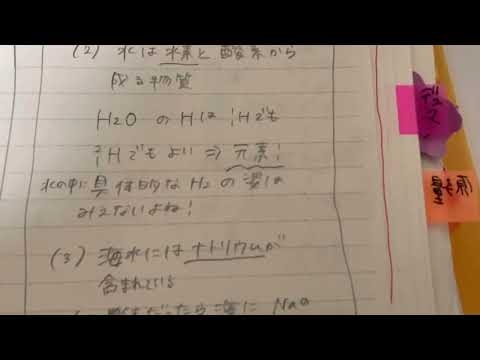 (2) 水は水素と酸素から
成る物質
H2O の Hは ¹Hでも
²Hでもよい ⇒ 元素!
水の中に具体的な H2 の姿は
みえないよね!
(3) 海水にはナトリウムが
含まれている
だったら海に Na
デュ